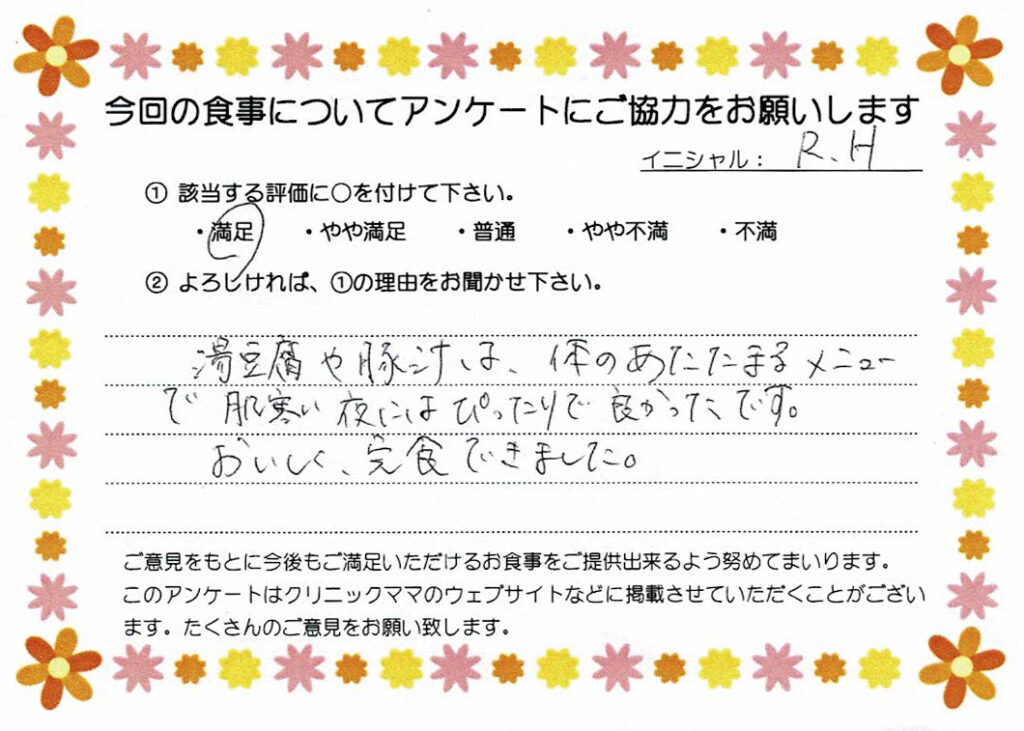 今回の食事についてアンケートにご協力をお願いします
イニシャル: R.H
① 該当する評価に〇を付けて下さい。
・満足 ・やや満足 ・普通 ・やや不満 ・不満
② よろしければ、①の理由をお聞かせ下さい。
湯豆腐や豚汁は、体のあたたまるメニュー
で肌寒い夜にはぴったりで良かったです。
おいしく、完食できました。
ご意見をもとに今後もご満足いただけるお食事をご提供出来るよう努めてまいります。
このアンケートはクリニックママのウェブサイトなどに掲載させていただくことがござい
ます。たくさんのご意見をお願い致します。